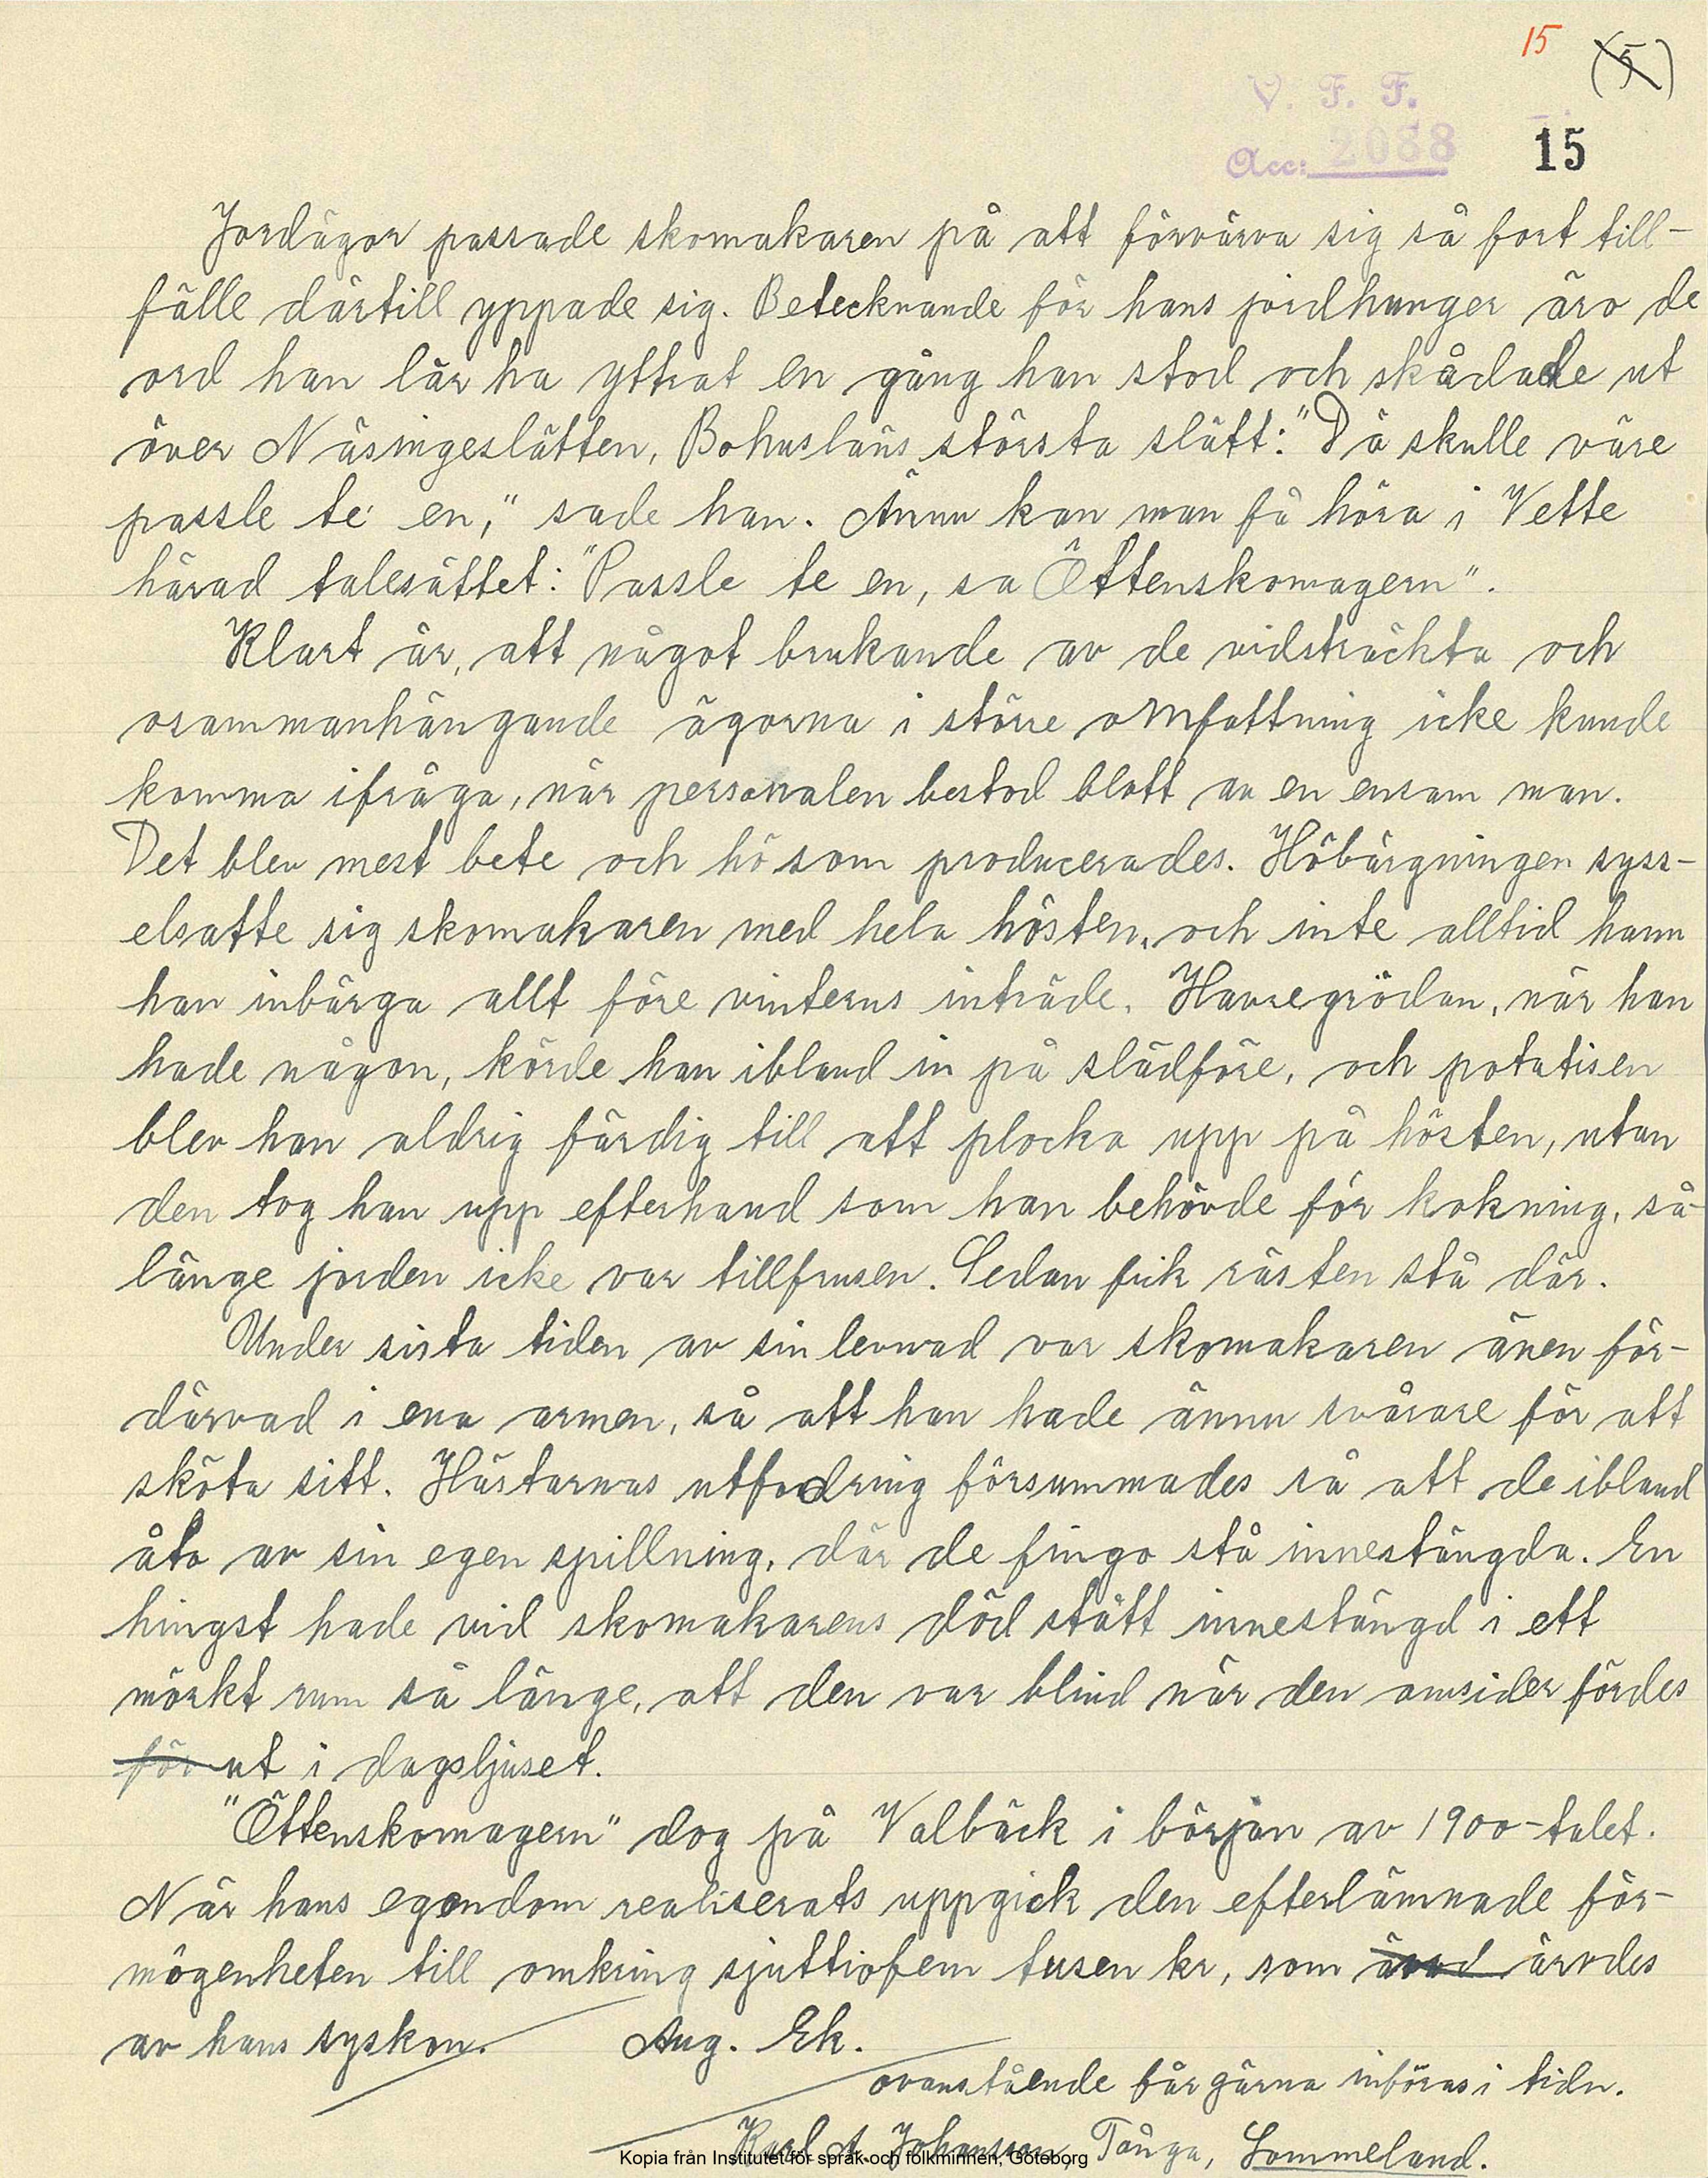 15 (5)
V. F. F.
Acc: 2088 15
Jordägor passade skomakaren på att förvärva sig så fort till-
fälle därtill yppade sig. Betecknande för hans jordhunger äro de
ord han lär ha yttrat en gång han stod och skådade ut
över Näsingeslätten, Bohusläns största slätt: "Dä skulle väre
passle te en," sade han. Ännu kan man få höra i Vette
härad talesättet: "Passle te en, sa Öttenskomagern".
Klart är, att något brukande av de vidsträckta och
osammanhängande ägorna i större omfattning icke kunde
komma ifråga, när personalen bestod blott av en ensam man.
Det blev mest bete och hö som producerades. Höbärgningen syss-
elsatte sig skomakaren med hela hösten, och inte alltid hann
han inbärga allt före vinterns inträde. Havregrödan, när han
hade någon, körde han ibland in på slädföre, och potatisen
blev han aldrig färdig till att plocka upp på hösten, utan
den tog han upp efterhand som han behövde för kokning, så
länge jorden icke var tillfrusen. Sedan fick rästen stå där.
Under sista tiden av sin levnad var skomakaren även för-
därvad i ena armen, så att han hade ännu svårare för att
sköta sitt. Hästarnas utfodring försummades så att de ibland
åto av sin egen spillning, där de fingo stå innestängda. En
hingst hade vid skomakarens död stått innestängd i ett
mörkt rum så länge, att den var blind när den omsider fördes
för ut i dagsljuset.
"Öttenskomagern" dog på Valbäck i början av 1900-talet.
När hans egendom realiserats uppgick den efterlämnade för-
mögenheten till omkring sjuttiofem tusen kr, som ärvd ärvdes
av hans syskon. Aug. Ek.
ovanstående får gärna införas i tidn.
Karl A. Johansson, Tånga, Lommeland.
Kopia från Institutet för språk och folkminnen, Göteborg